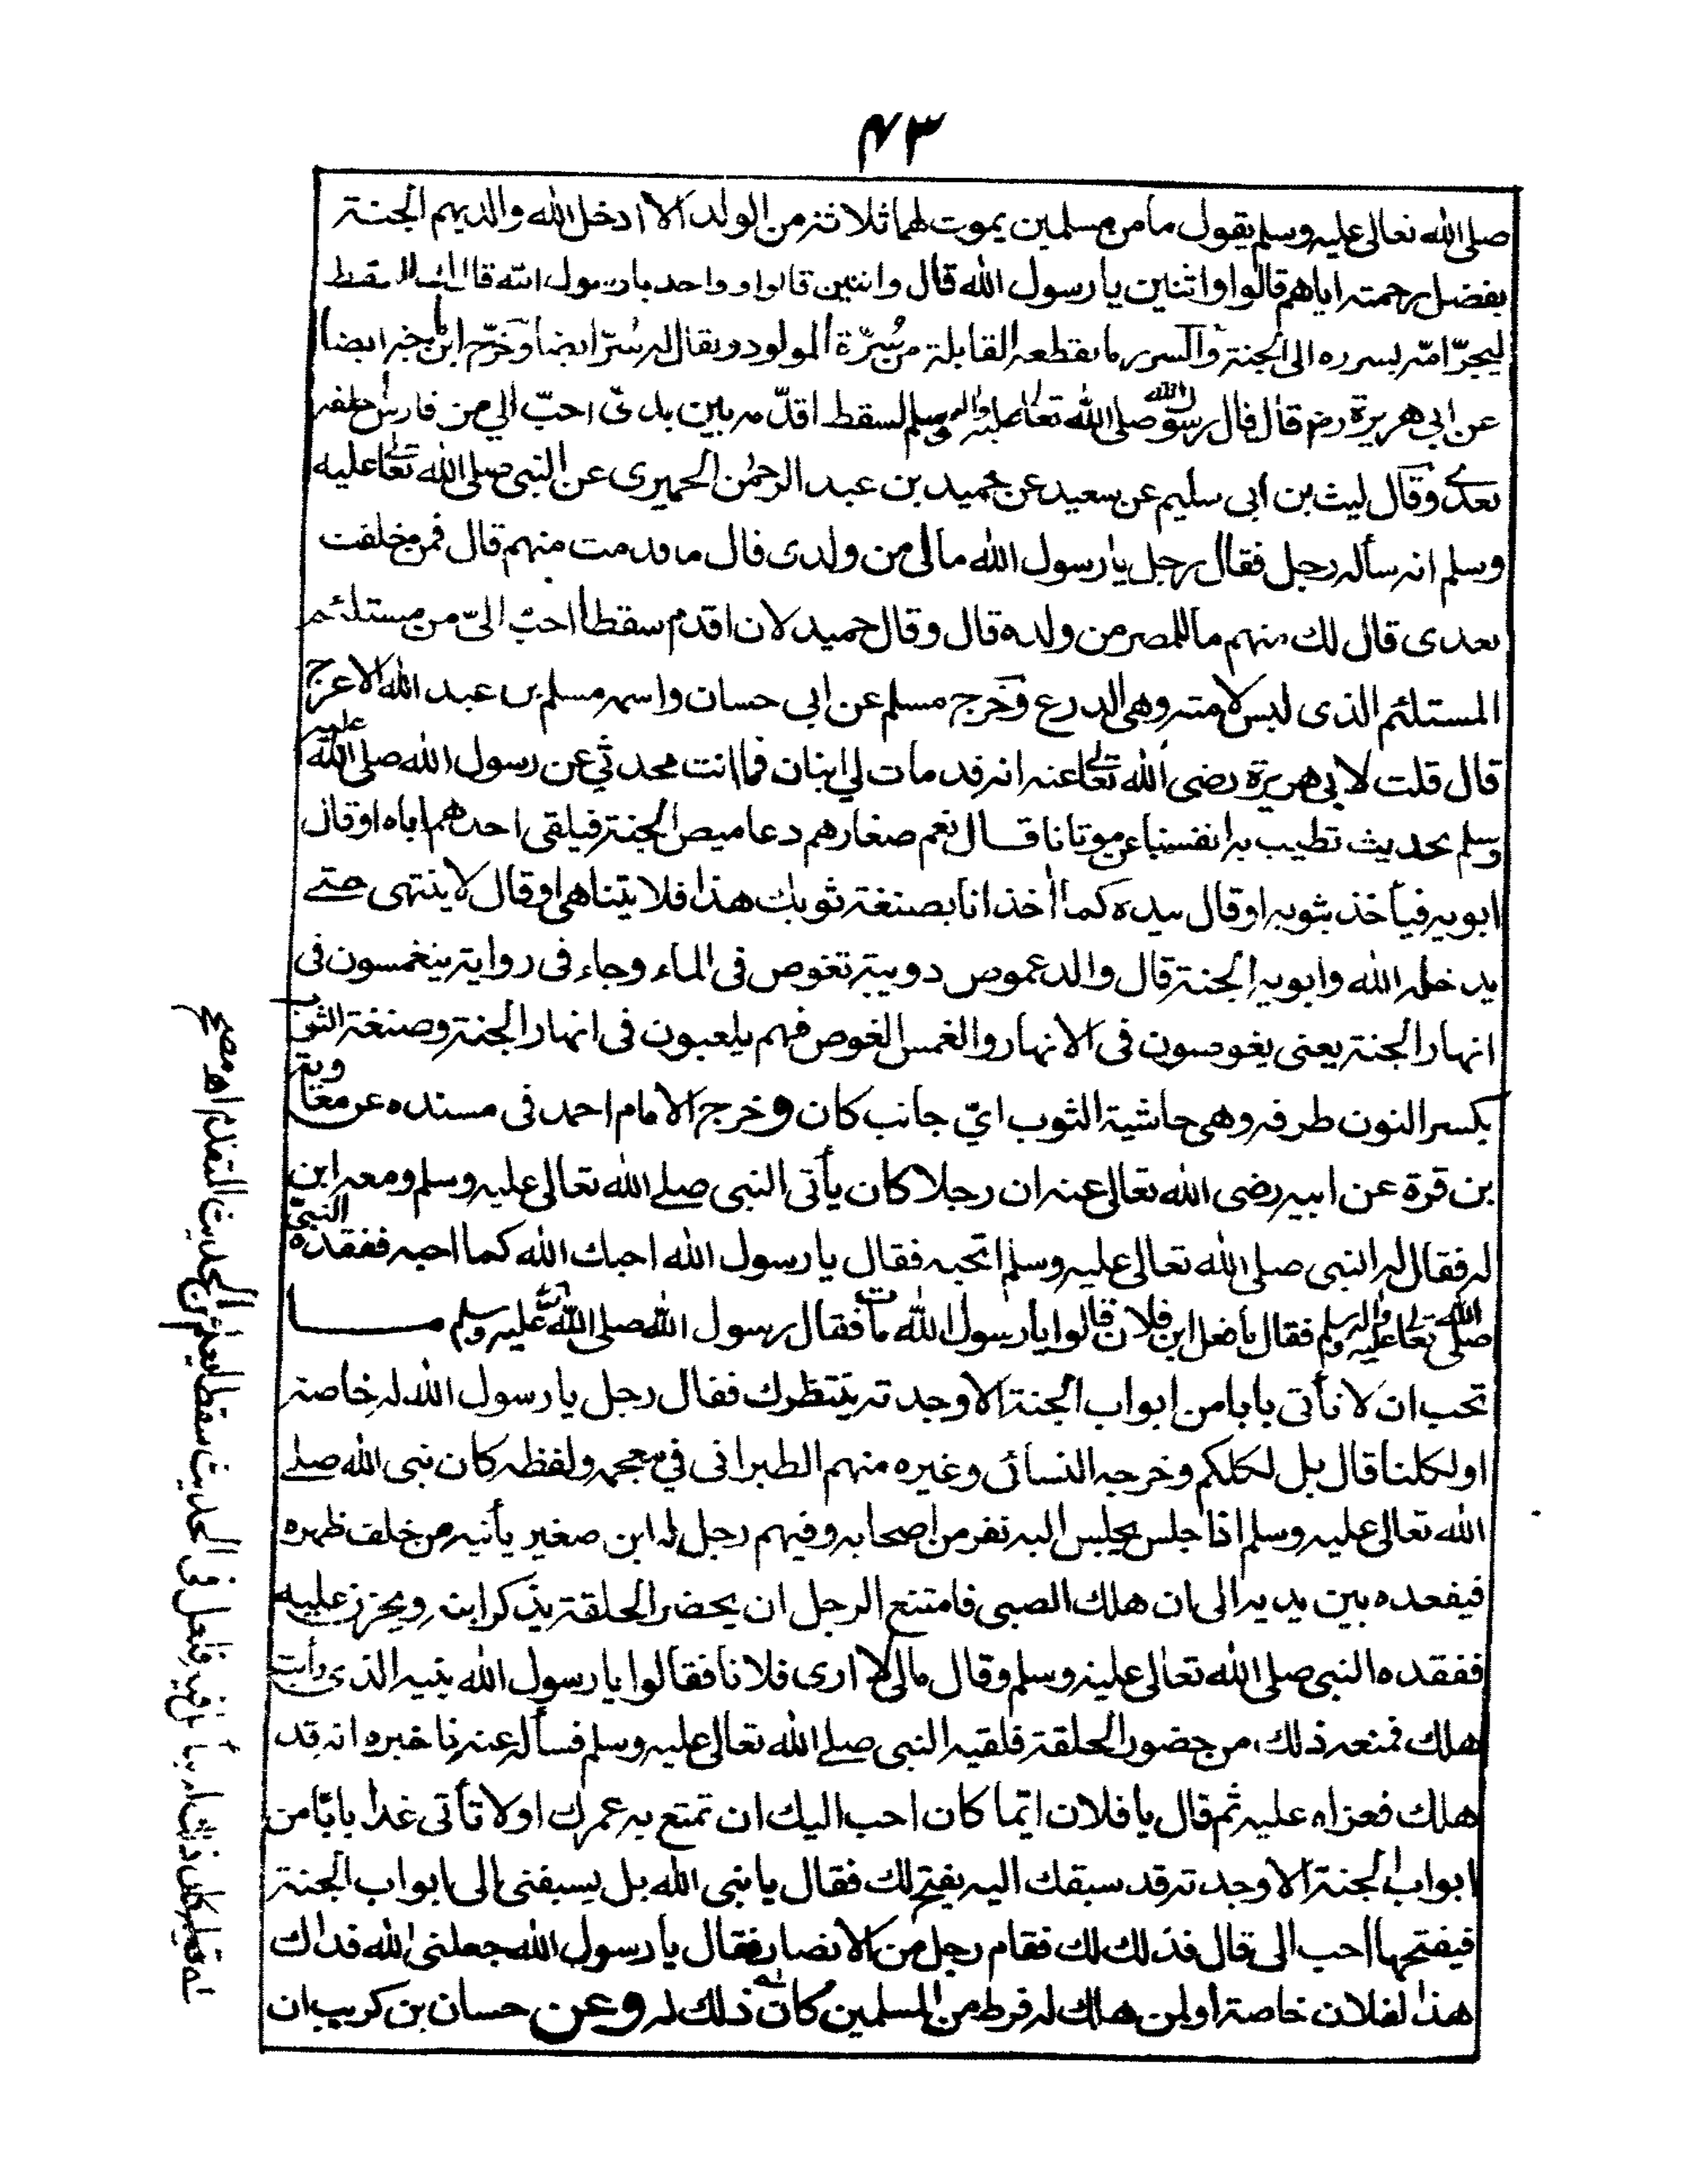 ٤٣
صلى الله تعالى عليه وسلم يقول ما من مسلمين يموت لهما ثلاثة من الولد الا ادخل الله والديهم الجنة
بفضل رحمته اياهم قالوا واثنين يا رسول الله قال واثنين قالوا وواحد يا رسول الله قال ان السقط
ليجرّ امّه بسرره الى الجنة والسرر ما يقطعه القابلة من سُرّة المولود ويقال له سُرّ ايضا وخرّج ابن ماجه ايضا
عن ابي هريرة رضه قال قال رسول الله صلى الله تعالى عليه واله وسلم لسقط اقدّمه بين يديّ احبّ الي من فارس خلفه
بعدي وقال ليث بن ابي سليم عن سعيد عن حميد بن عبد الرحمٰن الحميرى عن النبي صلى الله تعالى عليه
وسلم انه سأله رجل فقال رجل يا رسول الله مالى من ولدى قال ما قدمت منهم قال فمن خلفت
بعدى قال لك منهم ما للمصر من ولده قال وقال حميد لان اقدم سقطا احبّ اليّ من مستلئم
المستلئم الذى لبس لامته وهى الدرع وخرج مسلم عن ابى حسان واسمه مسلم بن عبد الله الاعرج
قال قلت لابى هريرة رضى الله تعالى عنه انه قد مات لي ابنان فما انت محدثي عن رسول الله صلى الله عليه
وسلم بحديث تطيب به انفسنا عن موتانا قال نعم صغارهم دعاميص الجنة فيلقى احدهم اباه او قال
ابويه فيأخذ بثوبه او قال بيده كما اخذ انا بصنفة ثوبك هذا فلا يتناهى او قال لا ينتهى حتى
يدخله الله وابويه الجنة قال والدعموص دويبة تغوص فى الماء وجاء فى رواية ينغمسون فى
انهار الجنة يعنى يغوصون فى الانهار والغمس الغوص فهم يلعبون فى انهار الجنة وصنفة الثوب
بكسر النون طرفه وهى حاشية الثوب ايّ جانب كان وخرج الامام احمد فى مسنده عن معاوية
بن قرة عن ابيه رضى الله تعالى عنه ان رجلا كان يأتى النبى صلى الله تعالى عليه وسلم ومعه ابن
له فقال له النبى صلى الله تعالى عليه وسلم اتحبه فقال يا رسول الله احبك الله كما احبه ففقده النبىّ
صلى الله تعالى عليه واله وسلم فقال ما فعل ابن فلان قالوا يا رسول الله مات فقال رسول الله صلى الله تعالى عليه وسلم ما
تحب ان لا تأتى بابا من ابواب الجنة الا وجدته ينتظرك فقال رجل يا رسول الله له خاصة
او لكلنا قال بل لكلكم وخرجه النسائى وغيره منهم الطبرانى في معجمه ولفظه كان نبى الله صلى
الله تعالى عليه وسلم اذا جلس يجلس اليه نفر من اصحابه وفيهم رجل له ابن صغير يأتيه من خلف ظهره
فيقعده بين يديه الى ان هلك الصبى فامتنع الرجل ان يحضر الحلقة يذكر ابنه ويحزن عليه
ففقده النبى صلى الله تعالى عليه وسلم وقال مالى لا ارى فلانا فقالوا يا رسول الله بنيه الذى رأيت
هلك فمنعه ذلك من حضور الحلقة فلقيه النبى صلى الله تعالى عليه وسلم فسأله عنه فاخبره انه قد
هلك فعزاه عليه ثم قال يا فلان ايّما كان احب اليك ان تمتع به عمرك او لا تأتى غدا بابا من
ابواب الجنة الا وجدته قد سبقك اليه يفتح لك فقال يا نبى الله بل يسبقنى الى ابواب الجنة
فيفتحها احب الى قال فذلك لك فقام رجل من الانصار فقال يا رسول الله جعلنى الله فداك
هذا لفلان خاصة او لمن هلك له فرط من المسلمين كان ذلك له وعن حسان بن كريب ان